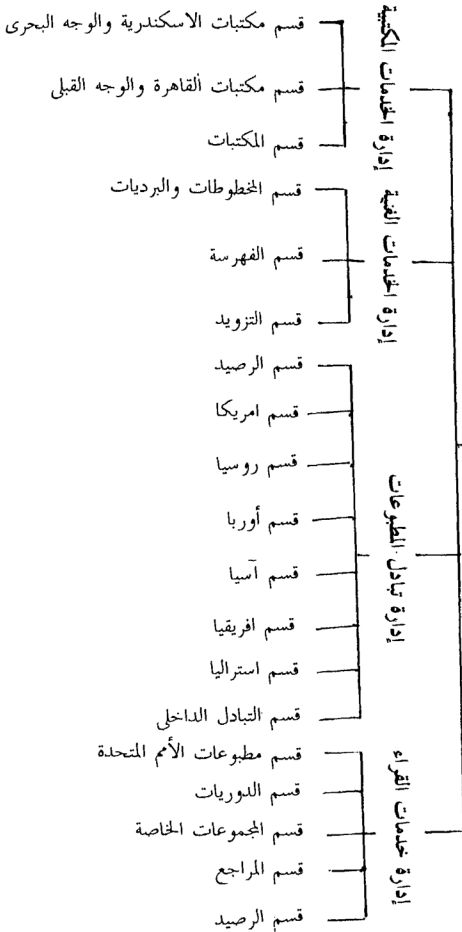 إدارة الخدمات المكتبية
قسم مكتبات الاسكندرية والوجه البحرى
قسم مكتبات القاهرة والوجه القبلى
قسم المكتبات
إدارة الخدمات الفنية
قسم المخطوطات والبرديات
قسم الفهرسة
قسم التزويد
إدارة تبادل المطبوعات
قسم الرصيد
قسم امريكا
قسم روسيا
قسم أوربا
قسم آسيا
قسم افريقيا
قسم استراليا
قسم التبادل الداخلى
إدارة خدمات القراء
قسم مطبوعات الأمم المتحدة
قسم الدوريات
قسم المجموعات الخاصة
قسم المراجع
قسم الرصيد